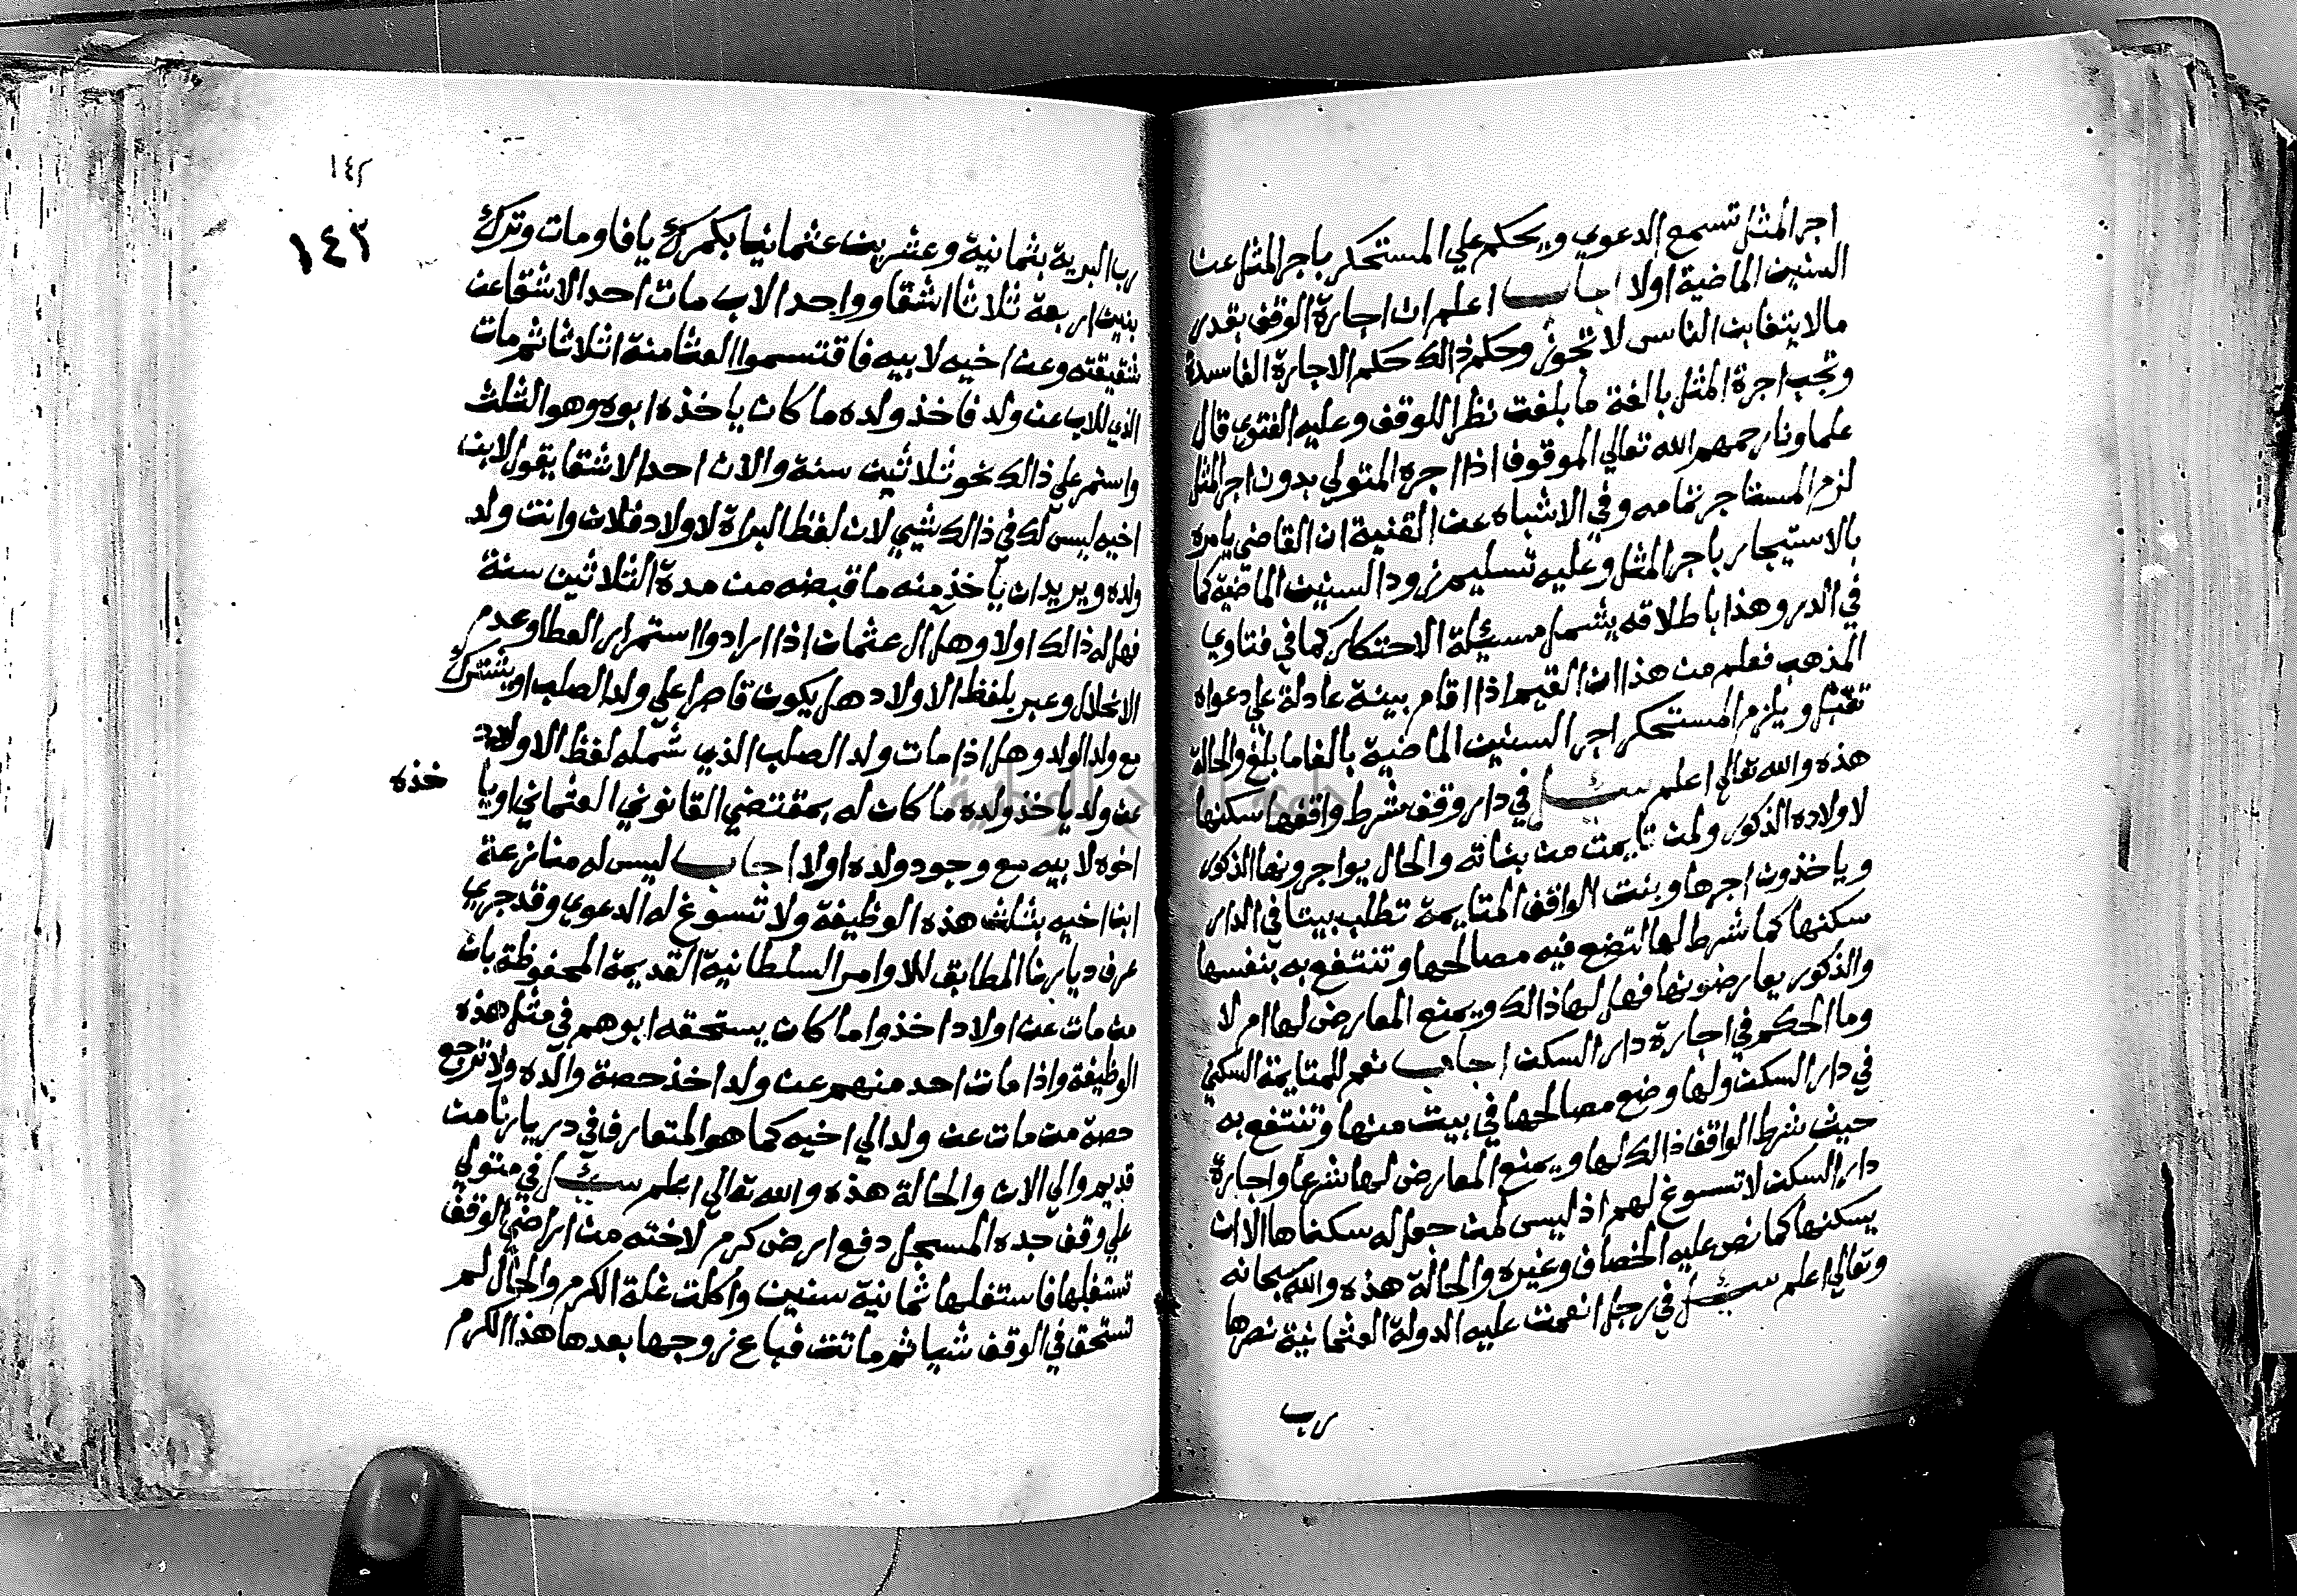 اجر المثل تسمع الدعوي ويحكم علي المستحكر باجر المثل عن
السنين الماضية اولا اجاب اعلم ان اجارة الوقف بقدر
مالا يتغابن الناس لا تجوز وحكم ذالك حكم الاجارة الفاسدة
وتجب اجرة المثل بالغة ما بلغت نظرا للوقف وعليه الفتوي قال
علماونا رحمهم الله تعالي الموقوف اذا اجره المتولي بدون اجر المثل
لزم المستاجر تمامه وفي الاشباه عن القنية ان القاضي يامره
بالاستيجار باجر المثل وعليه تسليم زود السنين الماضية كما
في الدر وهذا باطلاقه يشمل مسئلة الاحتكار كما في فتاوي
المذهب فعلم من هذا ان القيم اذا اقام بينة عادلة علي دعواه
تقبل ويلزم المستحكر اجر السنين الماضية بالغا ما بلغ والحالة
هذه والله تعالي اعلم سئل في دار وقف شرط واقفها سكنها
لاولاده الذكور ولمن تايمت من بناته والحال يواجرونها الذكور
وياخذون اجرها وبنت الواقف المتايمة تطلب بيتا في الدار
سكنها كما شرط لها لتضع فيه مصالحها وتنتفع به بنفسها
والذكور يعارضونها فهل لها ذالك ويمنع المعارض لها ام لا
وما الحكم في اجارة دار السكن اجاب نعم للمتايمة السكني
في دار السكن ولها وضع مصالحها في بيت منها وتنتفع به
حيث شرط الواقف ذالك لها ويمنع المعارض لها شرعا واجارة
دار السكن لا تسوغ لهم اذ ليس لمن جعل له سكناها الا ان
يسكنها كما نص عليه الخصاف وغيره والحالة هذه والله سبحانه
وتعالي اعلم سئل في رجل انعمت عليه الدولة العثمانية نصرها
رب
١٤٢
١٤٢
رب البرية بثمانية وعشرين عثمانيا بكمرك يافا ومات وترك
بنين اربعة ثلاثا اشقا وواحد الاب مات احد الاشقا عن
شقيقته وعن اخيه لابيه فاقتسموا العثامنة اثلاثا ثم مات
الذي للاب عن ولد فاخذ ولده ما كان ياخذه ابوه وهو الثلث
واستمر علي ذالك نحو ثلاثين سنة والان احد الاشقا يقول لابن
اخيه ليس لك في ذالك شيي لان لفظ البراة لاولاد فلان وانت ولد
ولده ويريد ان ياخذ منه ما قبضه من مدة الثلاثين سنة
فهل له ذالك اولا وهل آل عثمان اذا ارادوا استمرار العطا وعدم
الانحلال وعبر بلفظ الاولاد هل يكون قاصرا علي ولد الصلب او يشترك
مع ولد الولد وهل اذا مات ولد الصلب الذي شمله لفظ الاولاد
عن ولد ياخذ ولده ما كان له بمقتضي القانوني العثماني او يا
خذه
اخوه لابيه مع وجود ولده اولا اجاب ليس له منازعة
ابن اخيه بثلث هذه الوظيفة ولا تسوغ له الدعوي وقد جري
عرف ديارنا المطابق للاوامر السلطانية القديمة المحفوظة بان
من مات عن اولاد اخذوا ما كان يستحقه ابوهم في مثل هذه
الوظيفة واذا مات احد منهم عن ولد اخذ حصة والده ولا ترجع
حصة من مات عن ولد الي اخيه كما هو المتعارف في ديارنا من
قديم والي الان والحالة هذه والله تعالي اعلم سئل في متولي
علي وقف جده المسجل دفع ارض كرم لاخته من اراضي الوقف
تستغلها فاستغلها ثمانية سنين واكلت غلة الكرم والحال لم
تستحق في الوقف شيا ثم ماتت فباع زوجها بعدها هذا الكرم